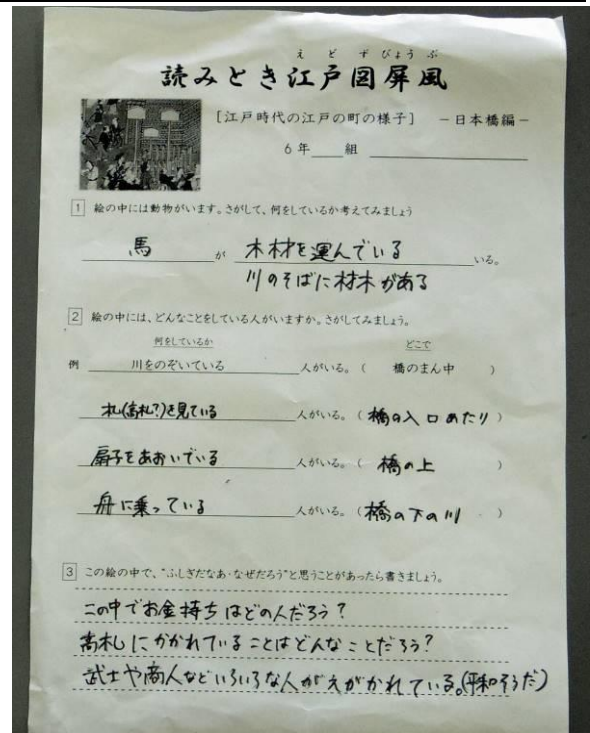 えどずびょうぶ
読みとき江戸図屏風
[江戸時代の江戸の町の様子] －日本橋編－
6年＿＿組 ＿＿＿＿＿＿
1 絵の中には動物がいます。さがして、何をしているか考えてみましょう
馬 が 木材を運んでいる いる。
川のそばに材木がある
2 絵の中には、どんなことをしている人がいますか。さがしてみましょう。
何をしているか どこで
例 川をのぞいている 人がいる。( 橋のまん中 )
札(高札?)を見ている 人がいる。( 橋の入口あたり )
扇子をあおいでいる 人がいる。( 橋の上 )
舟に乗っている 人がいる。( 橋の下の川 )
3 この絵の中で、“ふしぎだなあ・なぜだろう”と思うことがあったら書きましょう。
この中でお金持ちはどの人だろう?
高札にかかれていることはどんなことだろう?
武士や商人などいろいろな人がえがかれている。(平和そうだ)